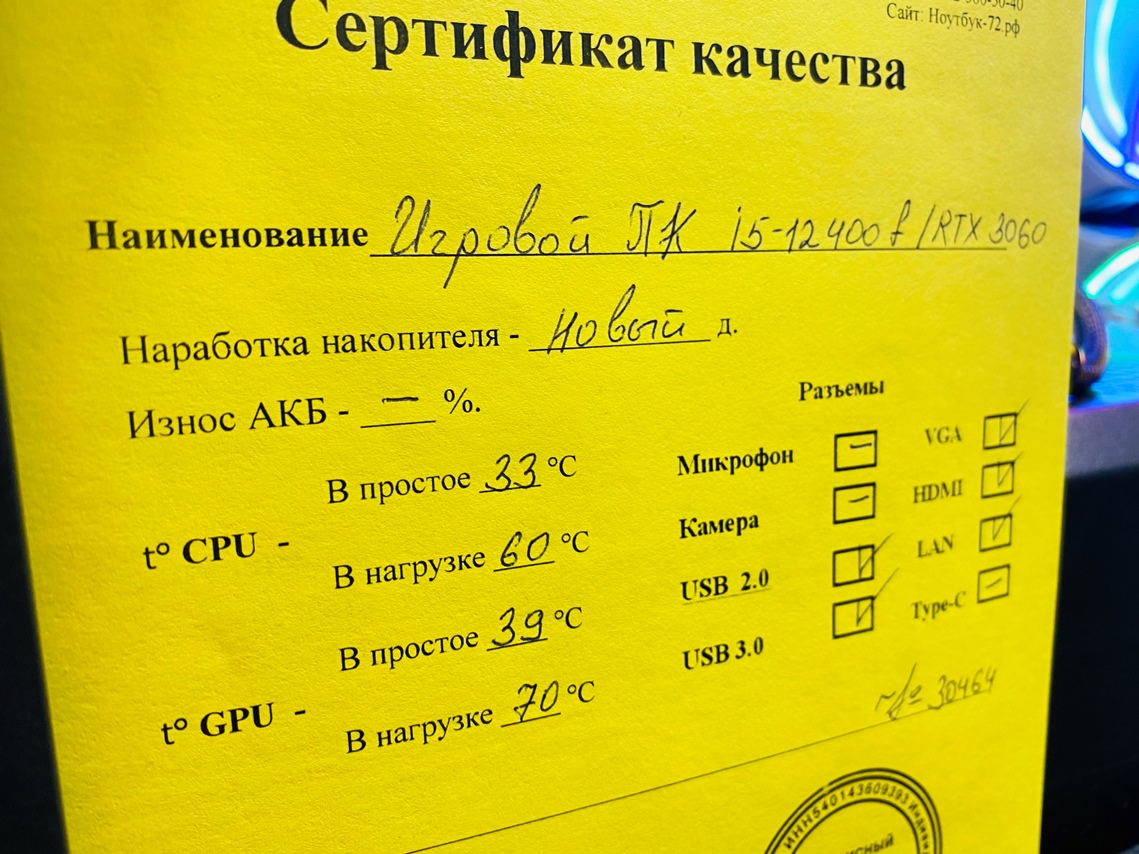 Сайт: Ноутбук-72.рф
Сертификат качества
Наименование Игровой ПК i5-12400f/RTX 3060
Наработка накопителя - новый д.
Износ АКБ - — %.
Разъемы
t° CPU -
В простое 33 °C
В нагрузке 60 °C
t° GPU -
В простое 39 °C
В нагрузке 70 °C
Микрофон
Камера
USB 2.0
USB 3.0
VGA
HDMI
LAN
Type-C
30464
ИНН540143609393